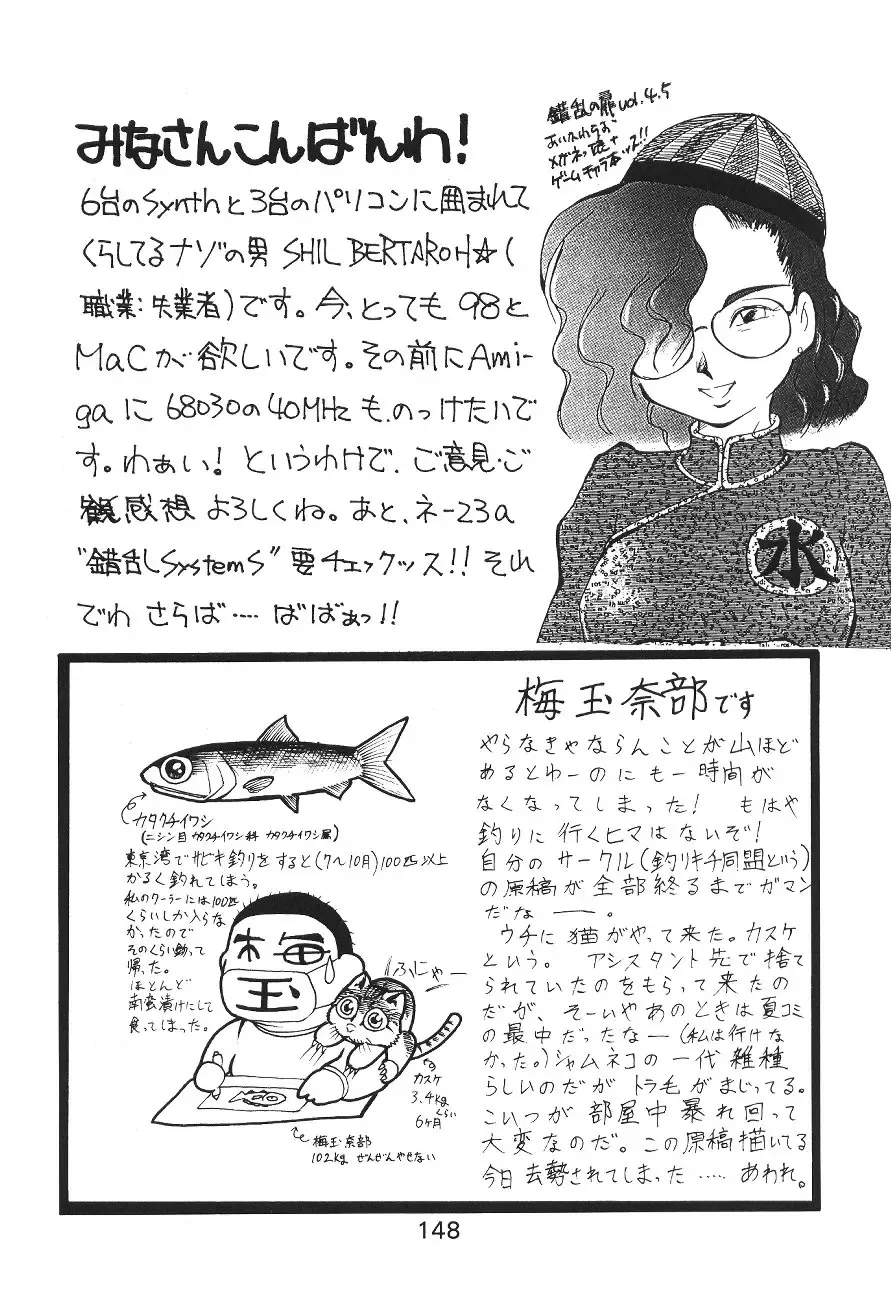 みなさんこんばんわ!
6台のSynthと3台のパソコンに囲まれて
くらしてるナゾの男 SHIL BERTAROH☆(
職業:失業者)です。今、とっても 98と
MaCが欲しいです。その前にAmi-
gaに 68030の40MHzも、のっけたいで
す。わぁい! というわけで、ご意見・ご
感想 よろしくね。あと、ネー23a
“錯乱SystemS”要チェックッス!! それ
でわ さらば‥‥ ばばぁっ!!
錯乱の扉vol.4.5
メガネっ娘+
ゲームキャラ本ッス!!
水
梅玉奈部です
やらなきゃならんことが山ほど
あるとゆーのにも一時間が
なくなってしまった! もはや
釣りに行くヒマはないぞ!
自分のサークル(釣りキチ同盟という)
の原稿が全部終るまでガマン
だなー。
ウチに猫がやって来た。カスケ
という。 アシスタント先で捨て
られていたのをもらって来たの
だが、そーいやあのときは夏コミ
の最中だったなー(私は行けな
かった。)シャムネコの一代雑種
らしいのだがトラ毛がまじってる。
こいつが部屋中暴れ回って
大変なのだ。この原稿描いてる
今日去勢されてしまった‥‥‥あわれ。
カタクチイワシ
(ニシン目 カタクチイワシ科 カタクチイワシ属)
東京湾でサビキ釣りをすると(7〜10月)100匹以上
かるく釣れてしまう。
私のクーラーには100匹
くらいしか入らな
かったので
そのくらい釣って
帰った。
ほとんど
南蛮漬けにして
食ってしまった。
梅
玉
ふにゃー
カスケ
3.4kg
くらい
6ヶ月
梅玉奈部
102kg ぜんぜんやせない
148